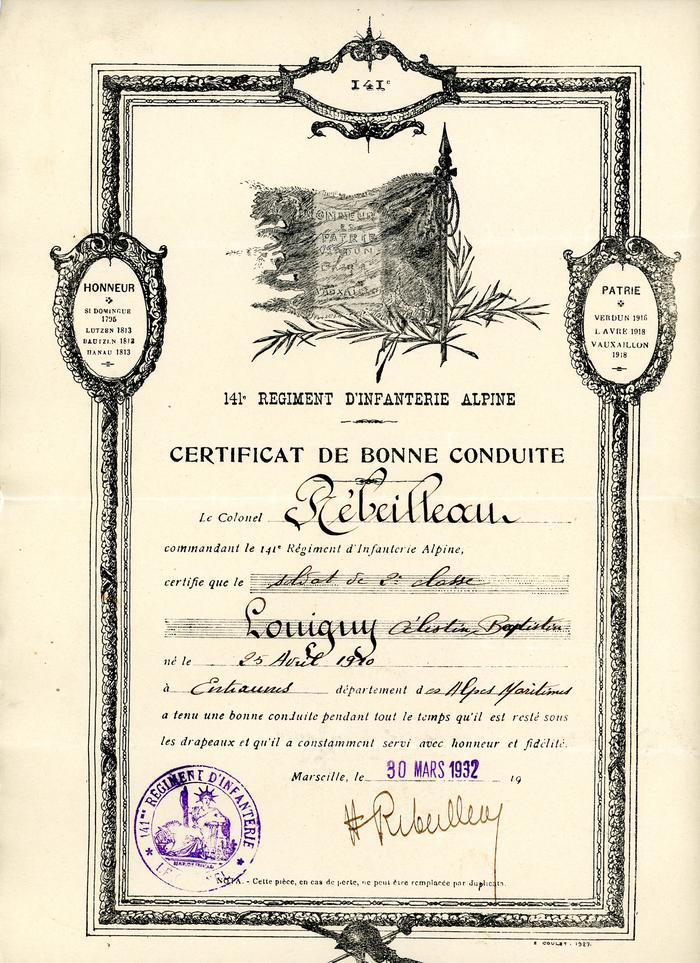 141e
HONNEUR
ET
PATRIE
HONNEUR
St DOMINGUE
1795
LUTZEN 1813
BAUTZEN 1813
HANAU 1813
PATRIE
VERDUN 1916
L'AVRE 1918
VAUXAILLON
1918
141e REGIMENT D'INFANTERIE ALPINE
CERTIFICAT DE BONNE CONDUITE
Le Colonel Rébeilleau
commandant le 141e Régiment d'Infanterie Alpine,
certifie que le soldat de 2e classe
Louigny Célestin, Baptistin
né le 25 Avril 1910
à Entraunes département des Alpes Maritimes
a tenu une bonne conduite pendant tout le temps qu'il est resté sous
les drapeaux et qu'il a constamment servi avec honneur et fidélité.
Marseille, le 30 MARS 1932 19
141me REGIMENT D'INFANTERIE
H Rébeilleau
NOTA. - Cette pièce, en cas de perte, ne peut être remplacée par duplicata.
E. COULET. 1929.